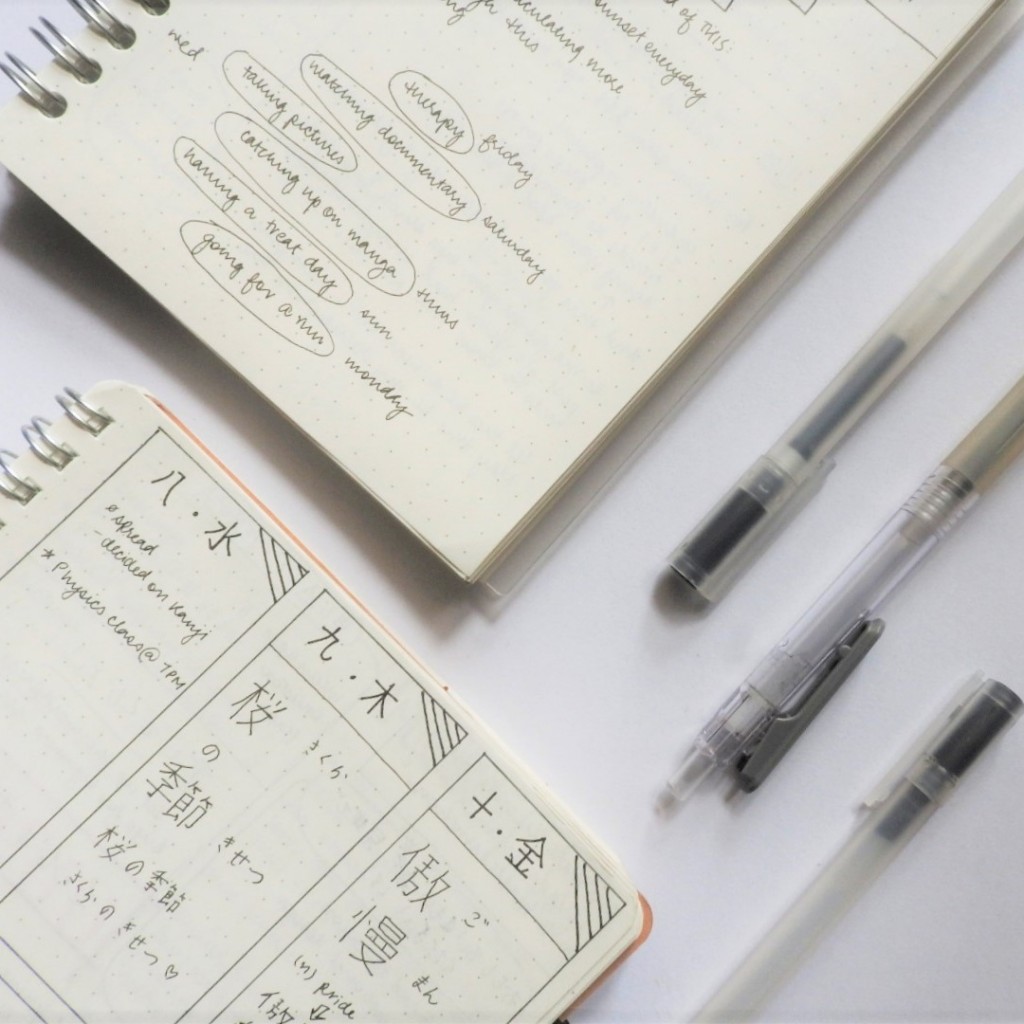 d of THIS:
sunset everyday
culating more
this
wed
therapy friday
watching documentary saturday
taking pictures
catching up on manga thurs
having a treat day sun
going for a run monday
八・水
spread
-decided on kanji
*Physics class@ 7PM
九・木
桜 さくら
の
季節 きせつ
桜の季節
さくらの きせつ♡
十・金
傲 ご
慢 まん
(n) Pride
傲